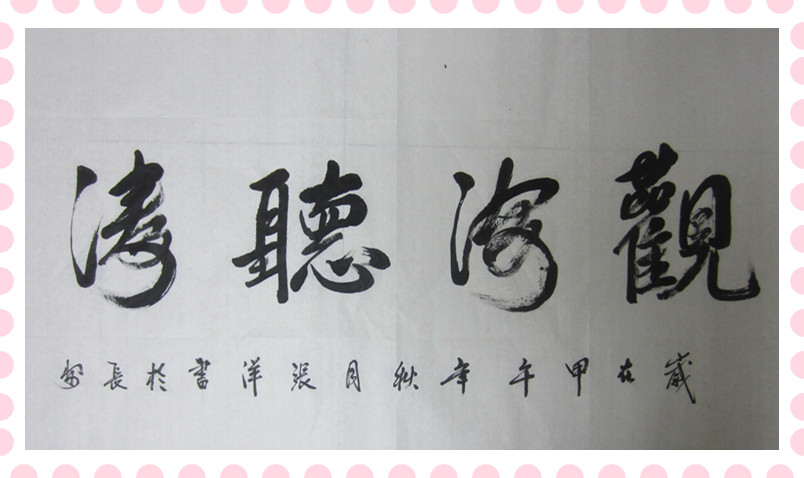 觀海聽濤
歲在甲午年秋月張洋書於長安